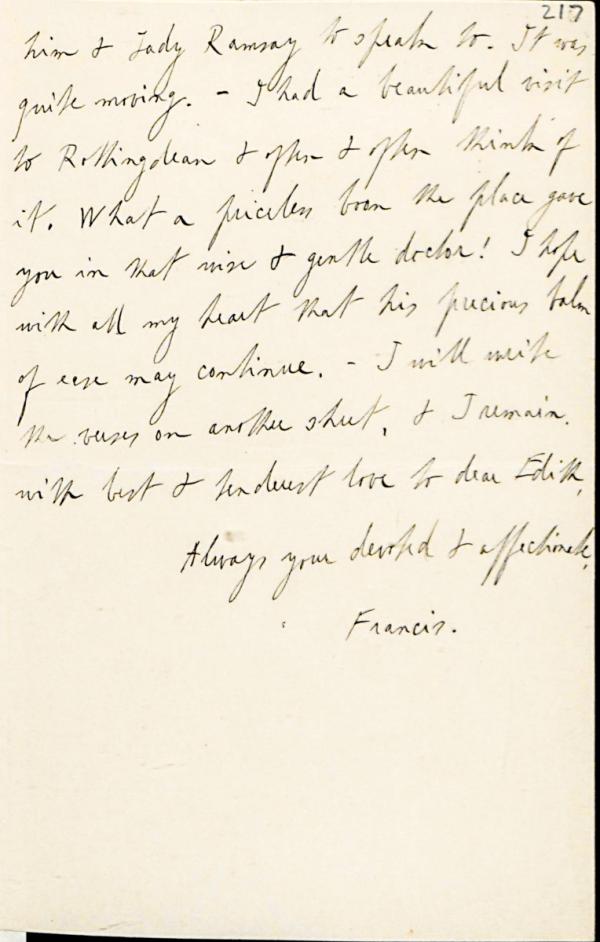 217
him & Lady Ramsay to speak to. It was
quite moving. – I had a beautiful visit
to Rottingdean & often & often think of
it. What a priceless boon the place gave
you in that wise & gentle doctor! I hope
with all my heart that his precious balm
of ease may continue. – I will write
the verses on another sheet, & I remain,
with best & tenderest love to dear Edith,
Always your devoted & affectionate,
Francis.